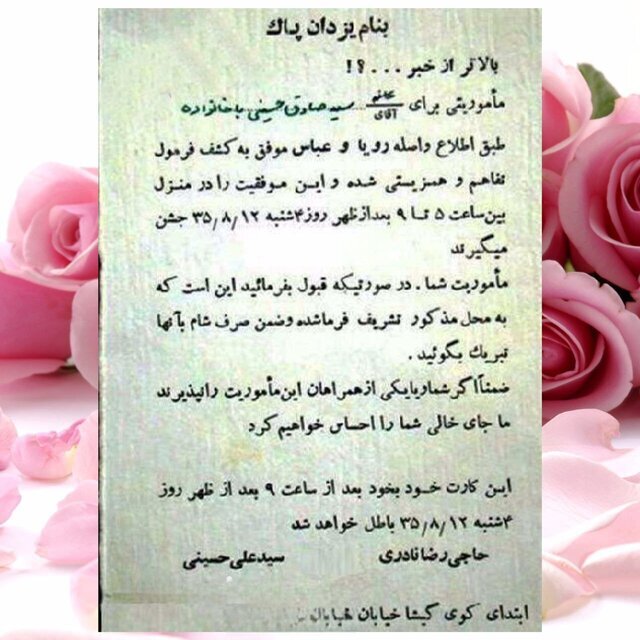 بنام یزدان پاك
بالاتر از خبر . . . ؟!
مأموریتی برای خانم آقای سید صادق حسینی باخانواده
طبق اطلاع واصله رویا و عباس موفق به کشف فرمول
تفاهم و همزیستی شده و این موفقیت را در منزل
بین ساعت ۵ تا ۹ بعدازظهر روز ۴شنبه ۳۵/۸/۱۲ جشن
میگیرند
مأموریت شما . در صورتیکه قبول بفرمائید این است که
به محل مذکور تشریف فرماشده وضمن صرف شام بآنها
تبریك بگوئید .
ضمناً اگر شما و یا یکی از همراهان این مأموریت رانپذیرند
ما جای خالی شما را احساس خواهیم کرد
این کارت خود بخود بعد از ساعت ۹ بعد از ظهر روز
۴شنبه ۳۵/۸/۱۲ باطل خواهد شد
حاجی رضا نادری سید علی حسینی
ابتدای کوی گیشا خیابان